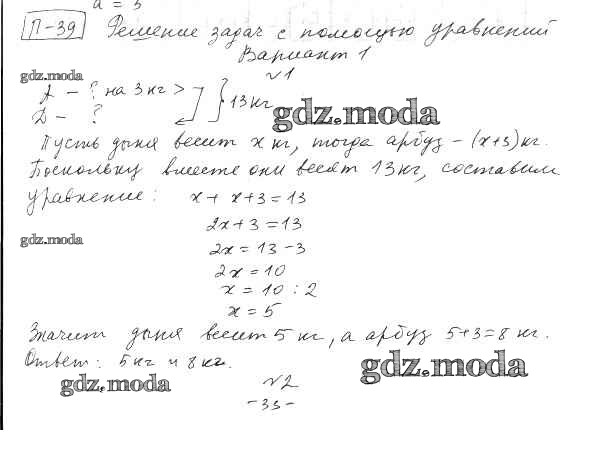 a = 3
П-39 Решение задач с помощью уравнений
Вариант 1
gdz.moda
№1
А - ? на 3 кг >
Д - ?
} 13 кг
gdz.moda
Пусть дыня весит x кг, тогда арбуз - (x+3) кг.
Поскольку вместе они весят 13 кг, составим
уравнение: x + x+3 = 13
2x+3 = 13
gdz.moda
2x = 13 - 3
2x = 10
x = 10 : 2
x = 5
Значит дыня весит 5 кг, а арбуз 5+3=8 кг.
Ответ: 5 кг и 8 кг.
gdz.moda
gdz.moda
№2
-33-